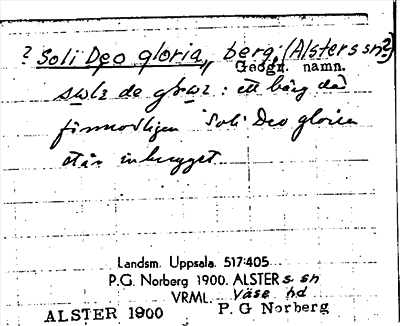 ? Soli Deo gloria, berg, (Alsters sn?)
Geogr. namn.
: ett berg där
förmodligen Soli Deo gloria
står inhugget
Landsm. Uppsala. 517:405
P.G. Norberg 1900. ALSTERs sn
VRML. Väse hd
ALSTER 1900 P. G Norberg